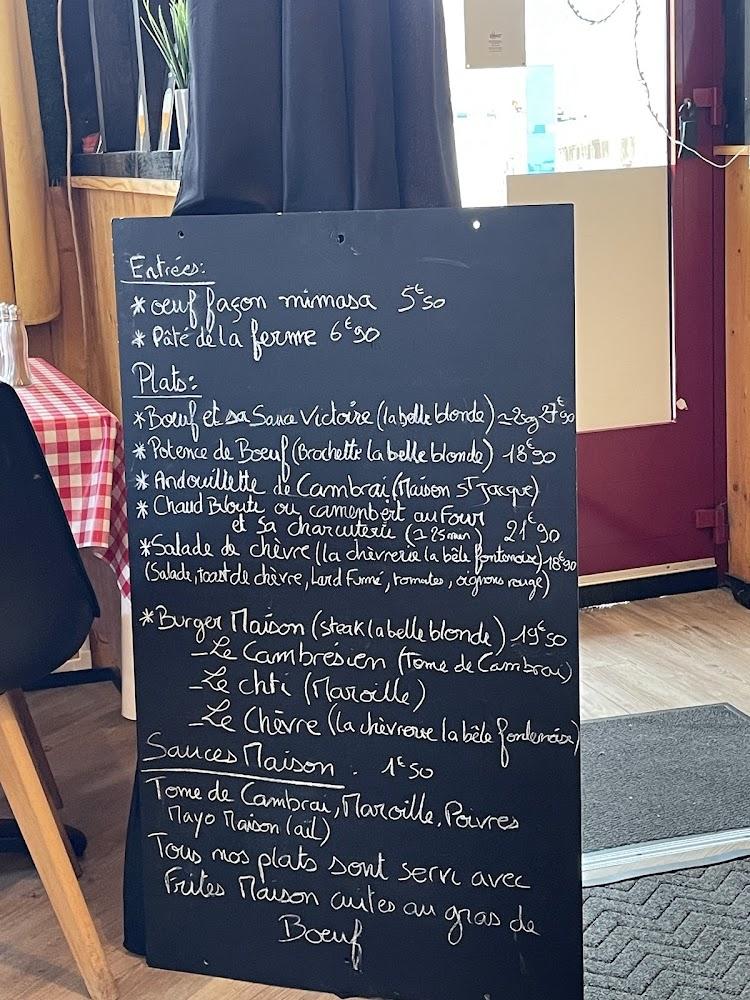 Entrées:
* oeuf façon mimasa 5€50
* Pâté de la ferme 6€90
Plats:
* Boeuf et sa Sauce Victoire (la belle blonde) 27€90
* Potence de Boeuf (Brochette la belle blonde) 18€90
* Andouillette de Cambrai (Maison St Jacque)
* Chaud Biloute ou camenbert au Four
et sa charcuterie 21€90
* Salade de chèvre (la chèvrerie la bêle fontenoise) 18€90
(Salade, toast de chèvre, Lard Fumé, tomates, oignons rouge)
* Burger Maison (steak la belle blonde) 19€50
- Le Cambrésien (Tome de Cambrai)
- Le chti (Maroille)
- Le Chèvre (la chèvrerie la bêle fontenoise)
Sauces Maison : 1€50
Tome de Cambrai, Maroille, Poivres
Mayo Maison (ail)
Tous nos plats sont servi avec
Frites Maison cuites au gras de
Boeuf